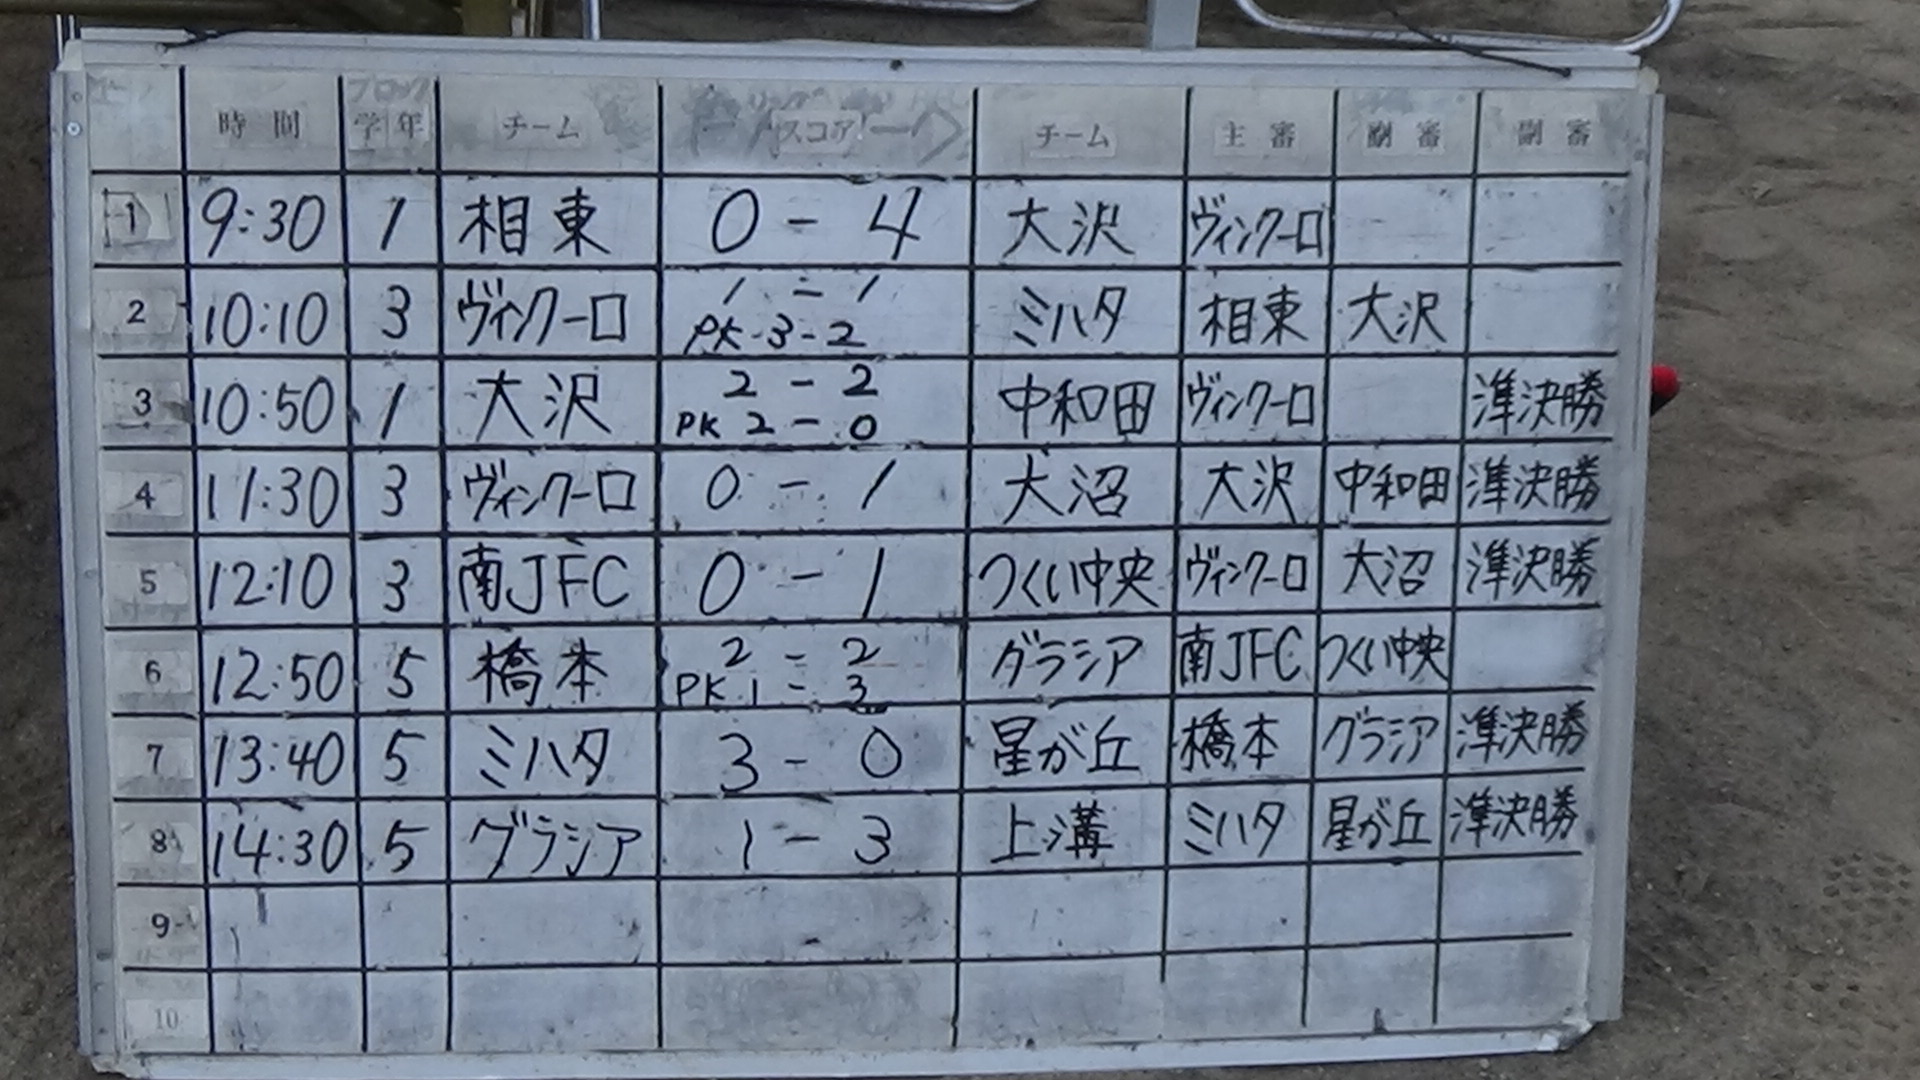 時間 ブロック 学年 チーム スコア チーム 主審 副審 副審
1 9:30 1 相東 0 - 4 大沢 ヴィンクーロ
2 10:10 3 ヴィンクーロ 1 - 1 PK 3 - 2 ミハタ 相東 大沢
3 10:50 1 大沢 2 - 2 PK 2 - 0 中和田 ヴィンクーロ 準決勝
4 11:30 3 ヴィンクーロ 0 - 1 大沼 大沢 中和田 準決勝
5 12:10 3 南JFC 0 - 1 つくい中央 ヴィンクーロ 大沼 準決勝
6 12:50 5 橋本 2 - 2 PK 1 - 3 グラシア 南JFC つくい中央
7 13:40 5 ミハタ 3 - 0 星が丘 橋本 グラシア 準決勝
8 14:30 5 グラシア 1 - 3 上溝 ミハタ 星が丘 準決勝
9
10